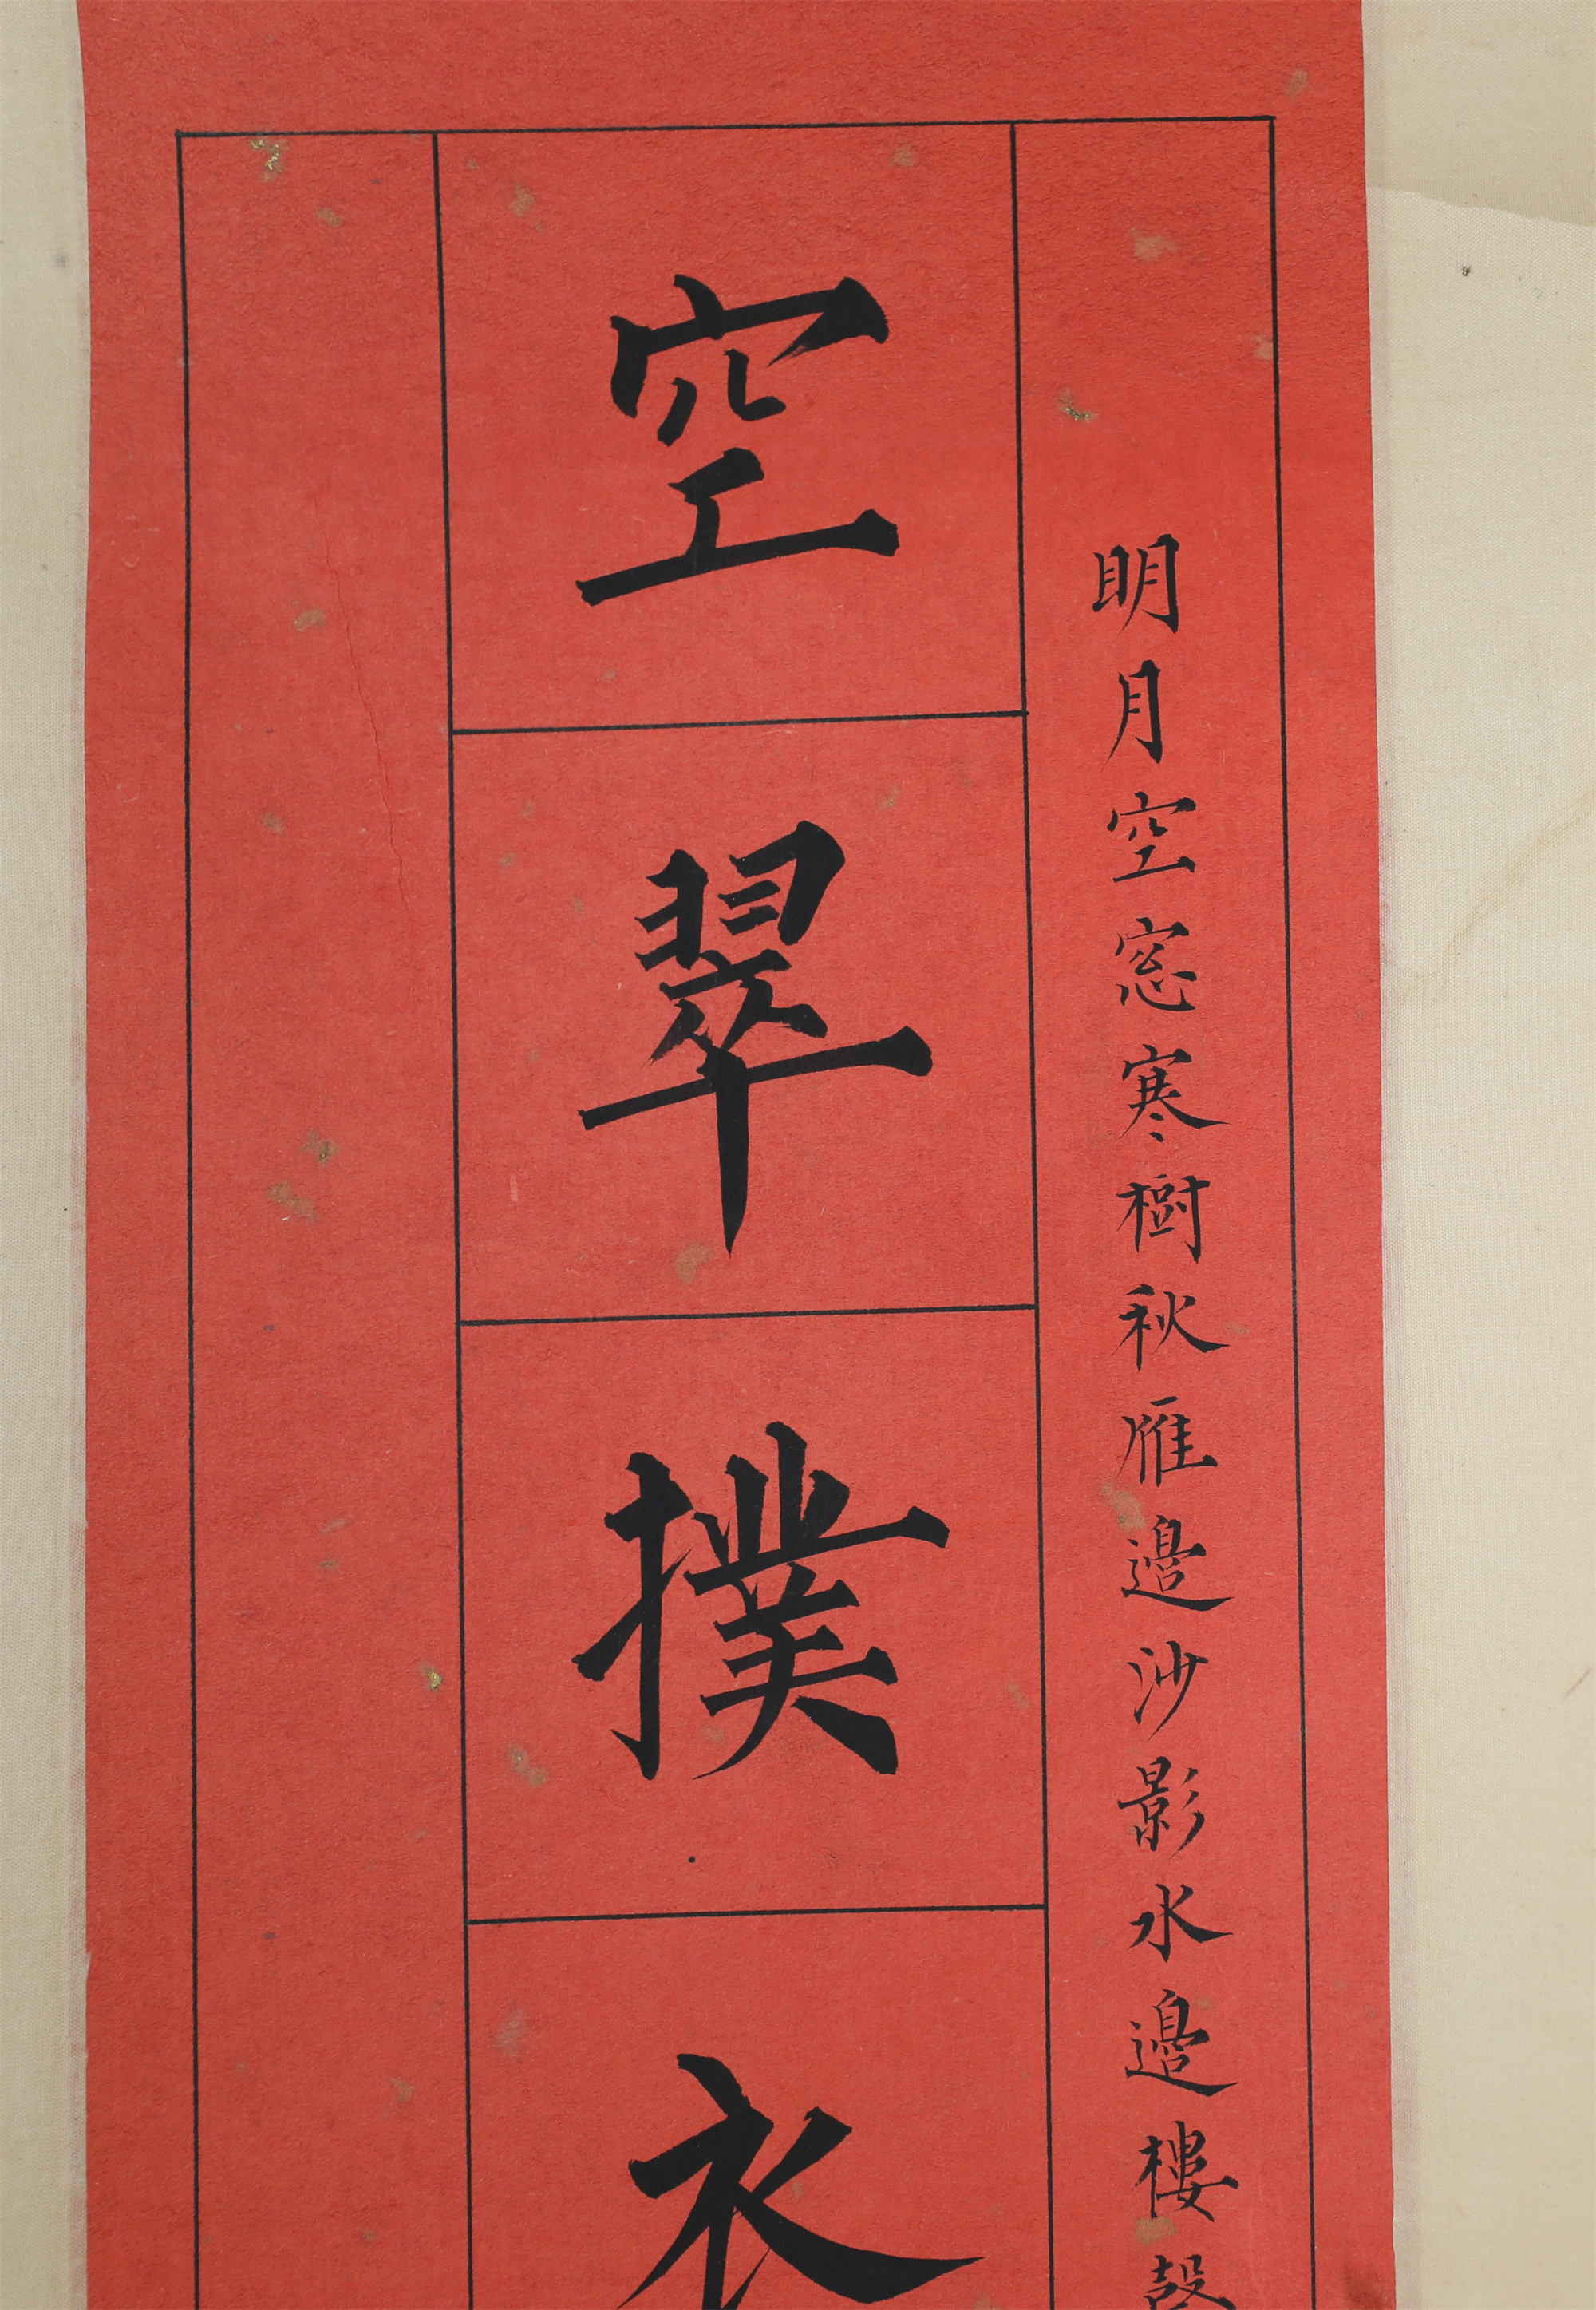 明月空窓寒樹秋雁邉沙影水邉樓
空翠撲衣